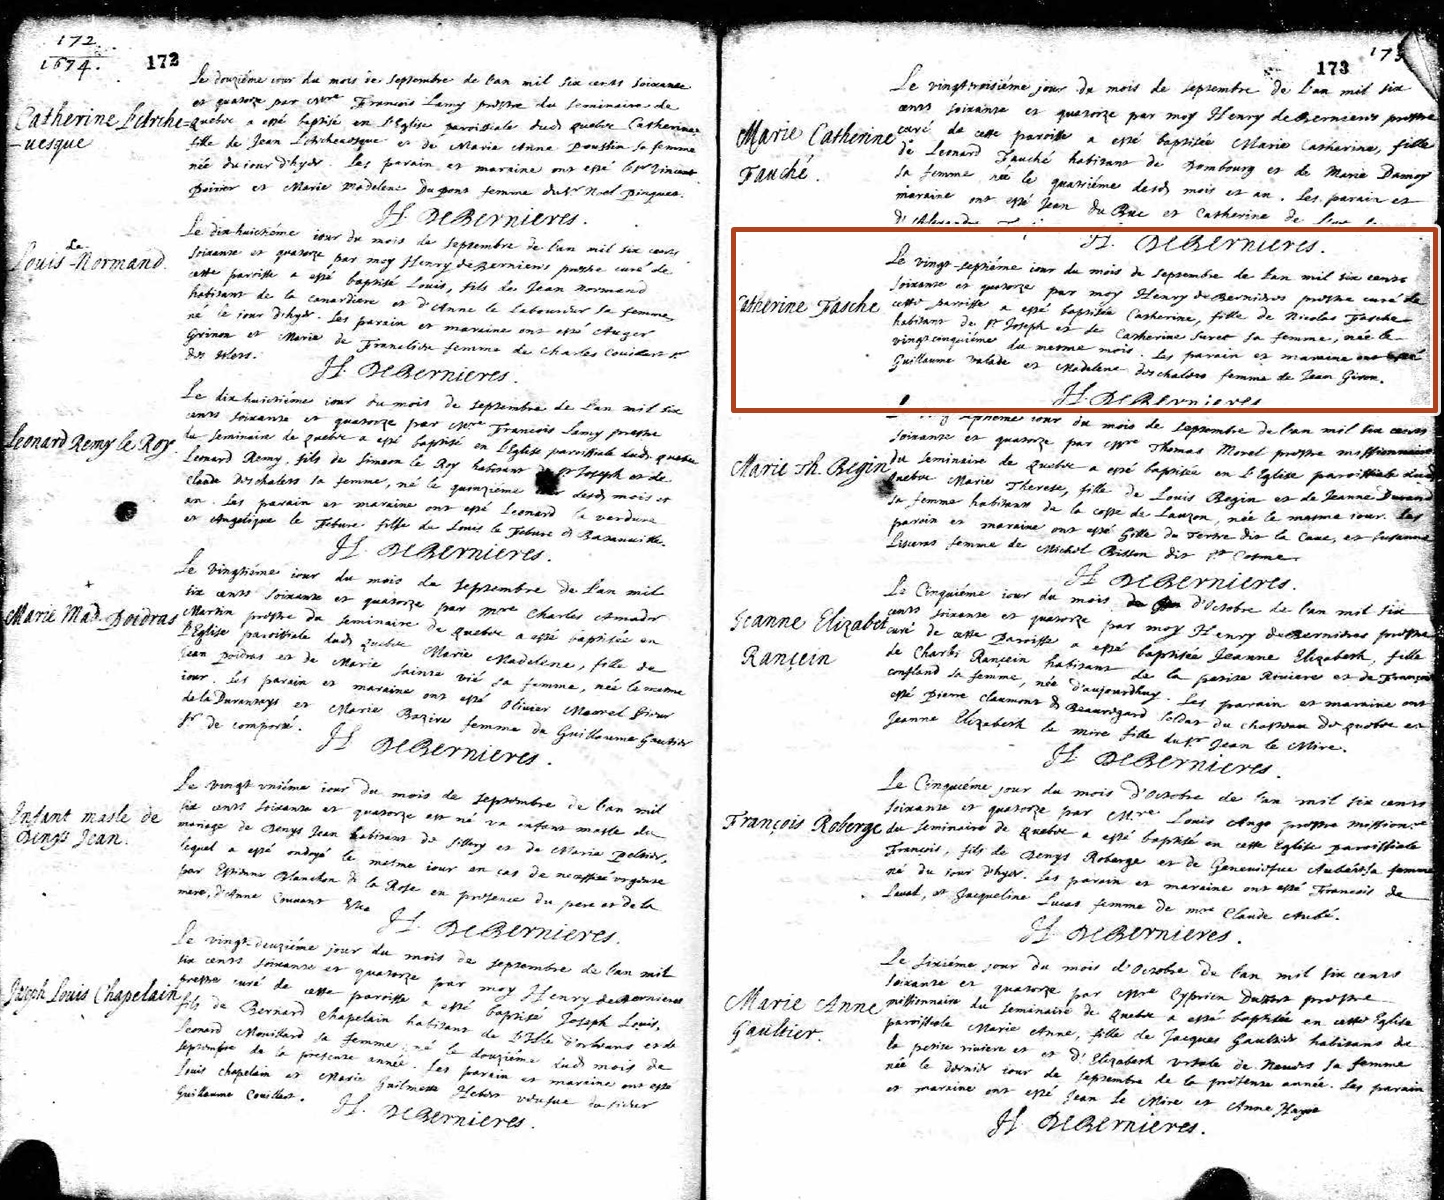 172.
1674.
172
Le douziéme iour du mois de septembre de l'an mil six cents soixante
et quatorze par Mre François Lamy prestre du seminaire de
Catherine L'Arche=
-uesque
Quebec a esté baptisé en l'Eglise parroissiale dud. Quebec Catherine
fille de Jean L'Archeuesque et de Marie Anne Poussin sa femme
née du iour d'hyer. Les parain et maraine ont esté le Sr Vincent
Poirier et Marie Madelene Dupont femme du Sr
H. DeBernieres.
Le dix-huictiéme iour du mois de septembre de l'an mil six cents
Louis Le Normand.
soixante et quatorze par moy Henry de Bernieres prestre curé de
cette parroisse a esté baptisé Louis, fils de Jean normand
habitant de la canardiere et d'Anne le Laboureur sa femme,
né le iour d'hyer. Les parain et maraine ont esté Auger
Grinon et Marie de femme de Charles Couillart Sr
des Islets.
H. DeBernieres.
Le dix huictiéme iour du mois de septembre de l'an mil six
cents soixante et quatorze par Mre François Lamy prestre
Leonard Remy le Roy.
du seminaire de Quebec a esté baptisé en l'Eglise parroissiale dud. Quebec
Leonard Remy, fils de Simeon le Roy habitant de St Joseph et de
Claude deschalets sa femme, né le quinziéme desd. mois et
an. Les parain et maraine ont esté Leonard le verdure
et Angelique le Febure fille de Louis le Febure
H. DeBernieres.
Le vingtiéme iour du mois de septembre de l'an mil
six cents soixante et quatorze par Mre Charles Amador
Marie Mad. Poidras
Martin prestre du seminaire de Quebec a esté baptisée en
l'Eglise paroissiale dud. Quebec Marie Madelene, fille de
Jean Poidras et de Marie Sainte vié sa femme, née le mesme
iour. Les parain et maraine ont esté Olivier Morel Sieur
de la Durantaye et Marie Bazire femme de Guillaume Gaultier
Sr de comporté.
H. DeBernieres.
Le vingt-vniéme iour du mois de septembre de l'an mil
six cents soixante et quatorze est né vn enfant masle du
Enfant masle de
Denys Jean.
mariage de Denys Jean habitant de sillery et de Marie Pelletier,
lequel a esté ondoyé le mesme iour en cas de necessité vrgente
par Estienne Blanchon dt la Rose en presence du pere et de la
mere, d'Anne Couuant
H. DeBernieres.
Le vingt-deuxiéme jour du mois de septembre de l'an mil
six cents soixante et quatorze par moy Henry de Bernieres
Joseph Louis Chapelain
prestre curé de cette paroisse a esté baptisé Joseph Louis,
fils de Bernard Chapelain habitant de l'Isle d'orleans et de
Leonard Mouillard sa femme, né le douziéme dud. mois de
septembre de la presente année. Les parain et maraine ont esté
Louis chapelain et Marie Guilmette Hebert veufue du sieur
Guillaume Couillart.
H. DeBernieres.
173
173
Le vingt-troisiéme jour du mois de septembre de l'an mil six
cents soixante et quatorze par moy Henry de Bernieres prestre
Marie Catherine
Fauché.
curé de cette paroisse a esté baptisée Marie Catherine, fille
de Leonard Fauché habitant de Dombourg et de Marie Damoy
sa femme née le quatriéme desd. mois et an. Les parain et
maraine ont esté Jean du Buc et Catherine de
H. DeBernieres.
Le vingt-septiéme iour du mois de septembre de l'an mil six cents
soixante et quatorze par moy Henry de Bernieres prestre curé de
atherine Fasche
cette parroisse a esté baptisée Catherine, fille de Nicolas Fasche
habitant de St Joseph et de Catherine Suret sa femme, née le
vingtcinquiéme du mesme mois. Les parain et maraine ont esté
Guillaume valade et Madelene deschalets femme de Jean Giron.
H. DeBernieres
iour du mois de septembre de l'an mil six cents
soixante et quatorze par Mre Thomas Morel prestre missionnaire
Marie Th. Begin
du seminaire de Quebec a esté baptisée en l'Eglise paroissiale dud.
Quebec Marie Therese, fille de Louis Begin et de Jeanne Durand
sa femme habitants de la coste de Lauzon, née le mesme iour. Les
parain et maraine ont esté Gilles du Tertre dit la Caue, et Susanne
Liseros femme de Michel Brisson dit St Cosme
H DeBernieres.
Le Cinquiéme iour du mois d'Octobre de l'an mil six
cents soixante et quatorze par moy Henry de Bernieres prestre
Jeanne Elizabet
Rançein
curé de cette Paroisse a esté baptisée Jeanne Elizabeth, fille
de Charles Rançein habitant de la petite Riuiere et de Françoise
confland sa femme, née d'aujourdhuy. Les parain et maraine ont
esté Pierre Claumont dt Beauregard soldat du chasteau de Quebec et
Jeanne Elizabeth le mire fille du Sr Jean le Mire.
H DeBernieres.
Le Cinquiéme jour du mois d'Octobre de l'an mil six cents
soixante et quatorze par Mre Louis Ango prestre mission.re
François Roberge
du seminaire de Quebec a esté baptisé en cette Eglise paroissiale
François, fils de Denys Roberge et de Geneuiefue Aubert sa femme
né du iour d'hyer. Les parain et maraine ont esté François de
Laual, et Jacqueline Lucas femme de mre Claude Aubé.
H DeBernieres.
Le sixiéme jour du mois d'Octobre de l'an mil six cents
soixante et quatorze par Mre Cyprien Dufort prestre
Marie Anne
Gaultier.
missionnaire du seminaire de Quebec a esté baptisée en cette Eglise
paroissiale Marie Anne, fille de Jacques Gaultier habitant de
la petite riuiere et et d'Elizabeth Vrsule de Neuers sa femme
née le dernier iour de septembre de la presente année. Les parain
et maraine ont esté Jean le Mire et Anne Hayot
H DeBernieres.